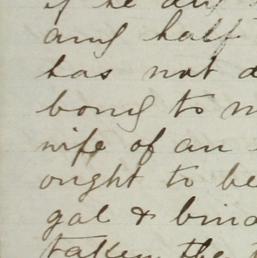 if he
and half
has not d
bond to m
wife of an
ought to be
gal & bind
taken the